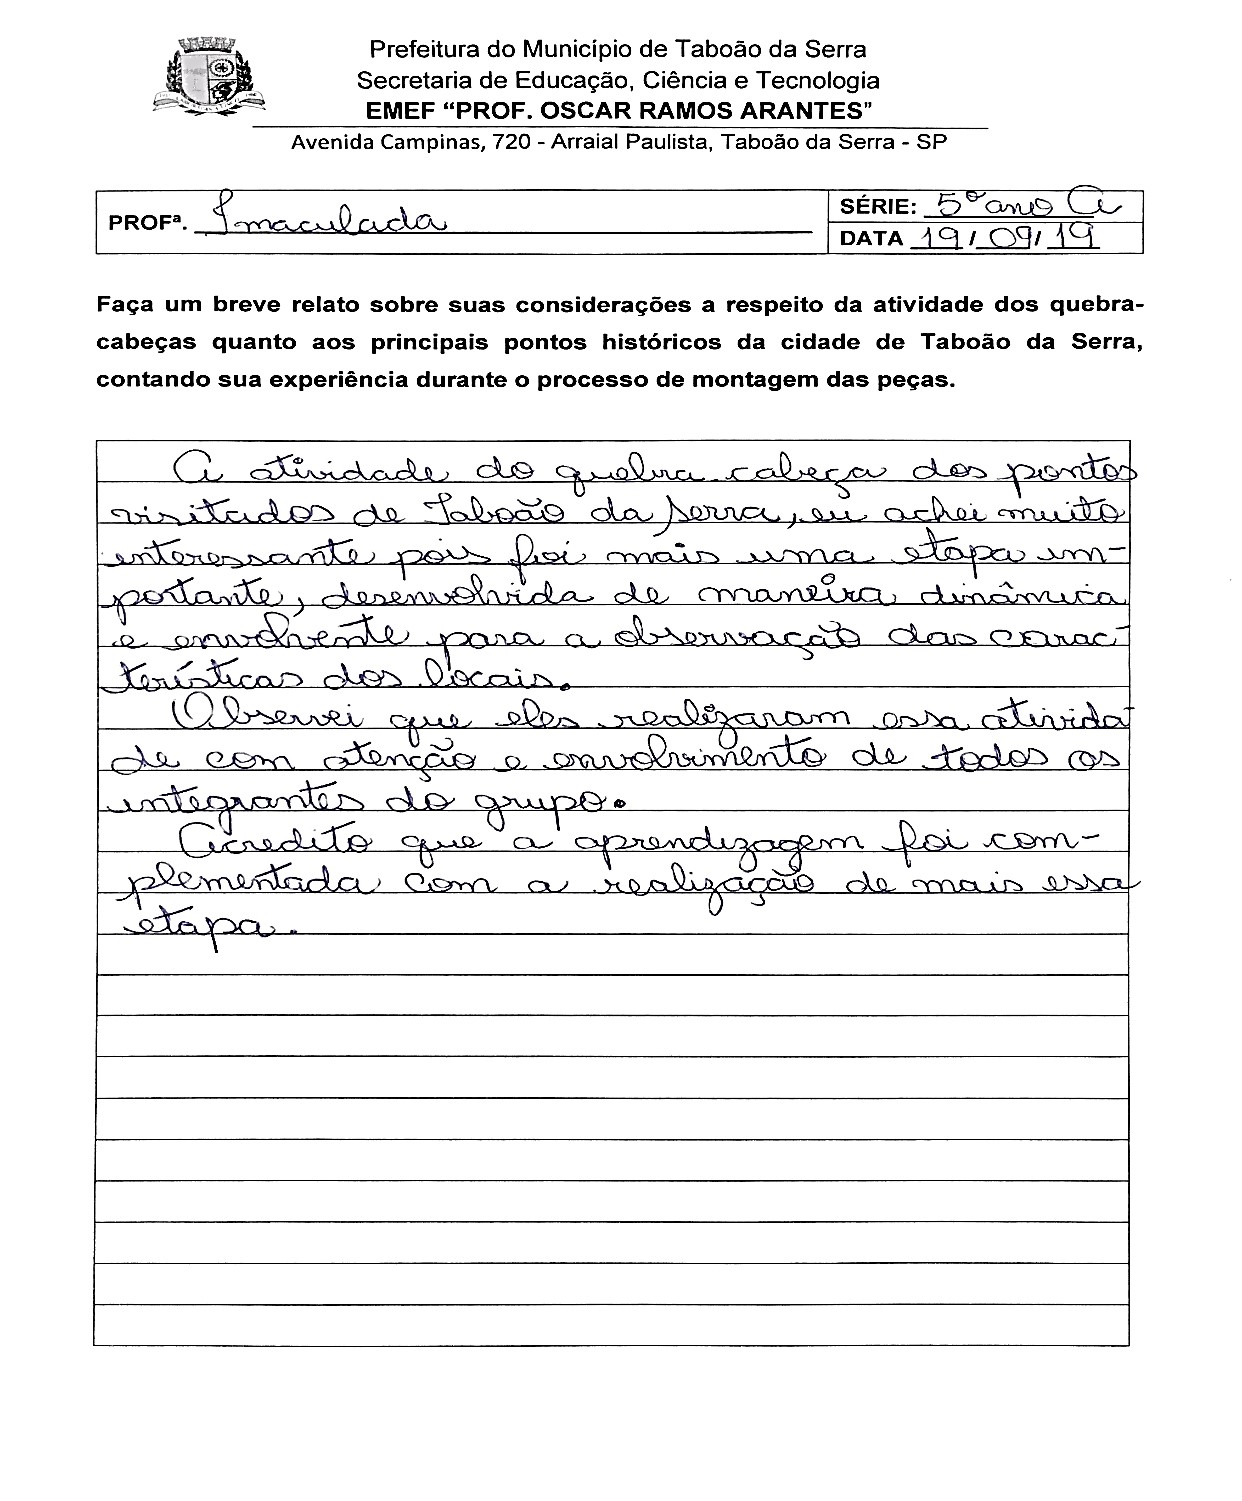 Prefeitura do Município de Taboão da Serra
Secretaria de Educação, Ciência e Tecnologia
EMEF “PROF. OSCAR RAMOS ARANTES”
Avenida Campinas, 720 - Arraial Paulista, Taboão da Serra - SP
PROFª. Imaculada
SÉRIE: 5º ano A
DATA 19/09/19
Faça um breve relato sobre suas considerações a respeito da atividade dos quebra-
cabeças quanto aos principais pontos históricos da cidade de Taboão da Serra,
contando sua experiência durante o processo de montagem das peças.
A atividade do quebra cabeça dos pontos
visitados de Taboão da Serra, eu achei muito
interessante pois foi mais uma etapa im-
portante, desenvolvida de maneira dinâmica
e envolvente para a observação das carac-
terísticas dos locais.
Observei que eles realizaram essa ativida-
de com atenção e envolvimento de todos os
integrantes do grupo.
Acredito que a aprendizagem foi com-
plementada com a realização de mais essa
etapa.